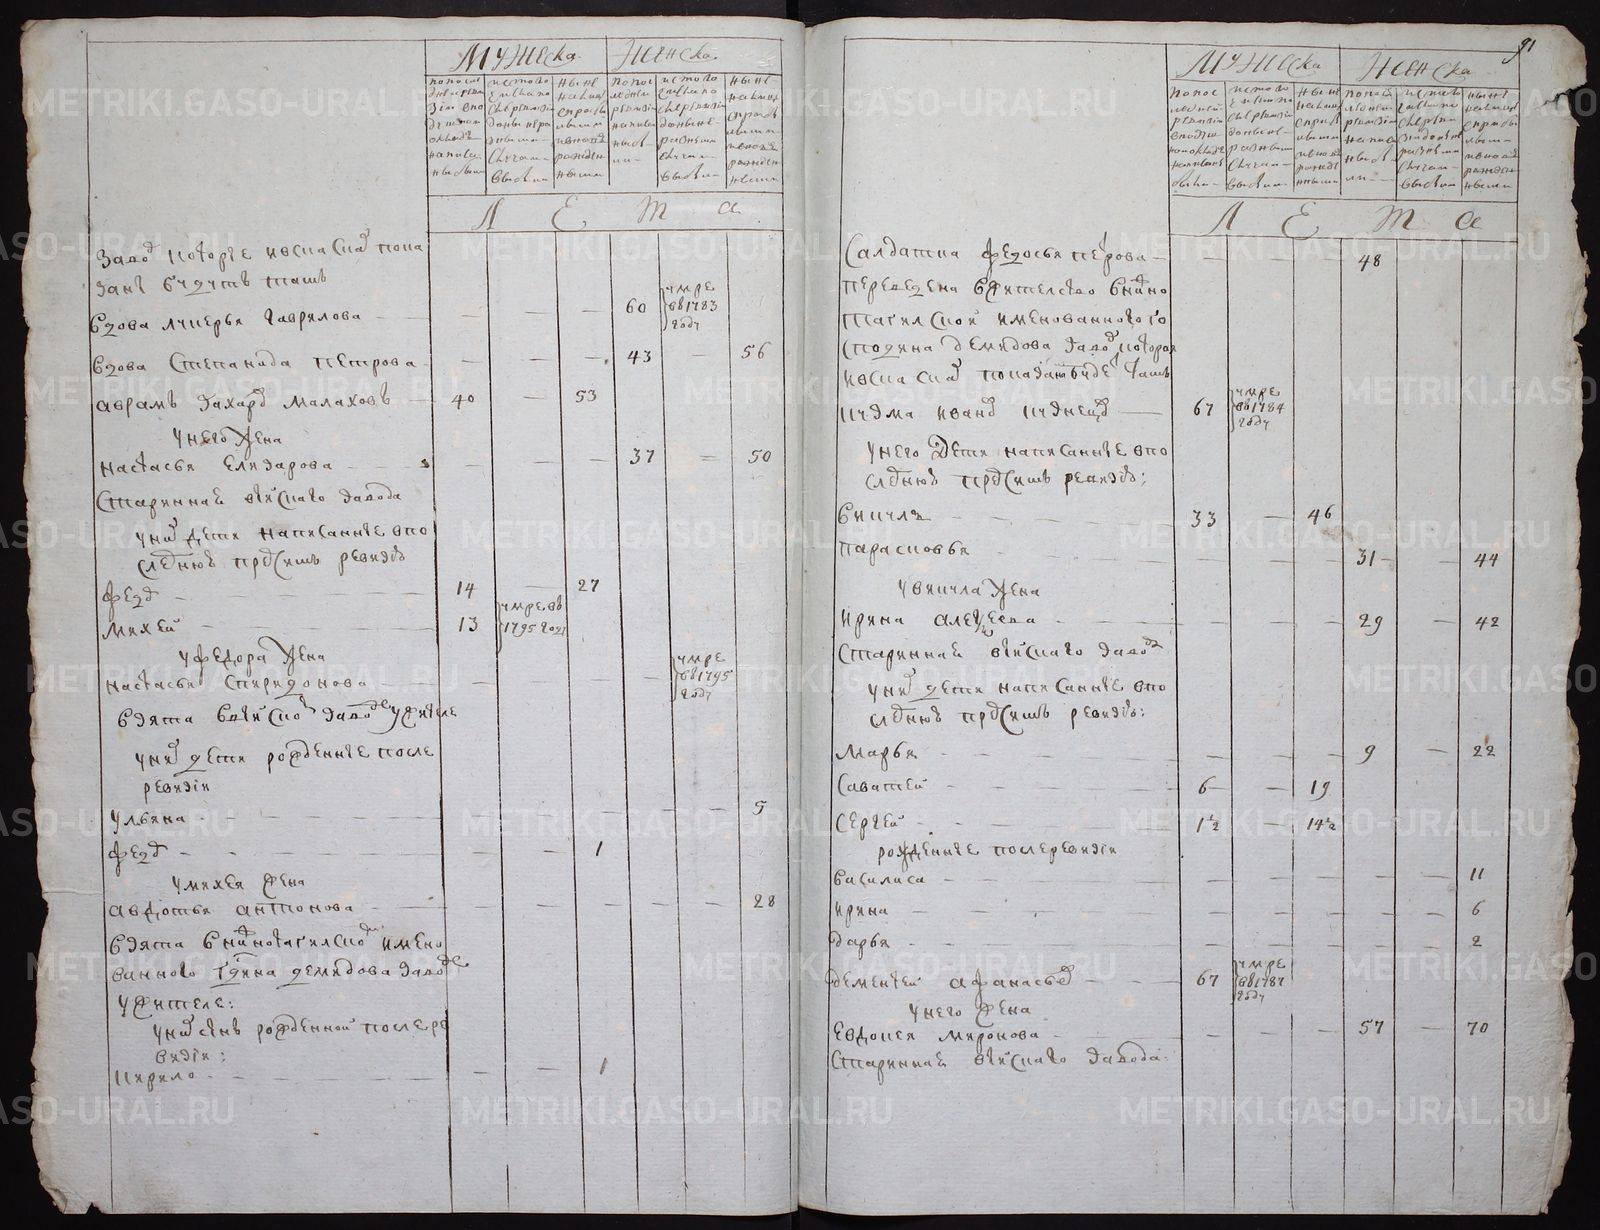 Мужеска Женска
Л Е Т а
завод которые ивсписках пока
заны будутъ тамъ
вдова лукерья гаврилова — — — 60 умре
вв1783
году
вдова степанида петрова — — — 43 — 56
аврамъ захаров малаховъ — 40 — 53
унего жена
настасья елизарова — — — 37 — 50
старинная вийскаго завода
уних дети написанные впо
следнюю пред симъ ревизию
федор — 14 — 27
михей — 13 умре вв
1795 году
уфедора жена
настасья спиридонова — — — умре
вв1795
году
взята ввийском заводе ужителе
уних дети рожденные после
ревизии
ульяна — — — 5
федор — — 1
умихея жена
авдотья антонова — — — 28
взята внижнотагилском имено
ванного гдина демидова заводе
ужителе:
уних сынъ рожденной послере
визии:
кирило — — 1
91
Мужеска Женска
Л Е Т а
салдатка федосья петрова — — — 48
переведена вжителство внижно
тагилской именованного го
сподина демидова завод которая
ивсписках показана будет тамъ
кузма иванов кузнецов — 67 умре
вв1784
году
унего дети написанные впо
следнюю пред симъ ревизию:
викула — 33 — 46
парасковья — 31 — 44
увикула жена
ирина алексеева — 29 — 42
старинная вийскаго завода
уних дети написанные впо
следнюю пред симъ ревизию:
марья — 9 — 22
саватей — 6 — 19
сергей — 1½ — 14½
рожденные послеревизии
василиса — 11
ирина — 6
дарья — 2
дементей афанасьев — 67 умре
вв1787
году
унего жена
евдокея миронова — 57 — 70
старинная вийскаго завода.
METRIKI.GASO-URAL.RU